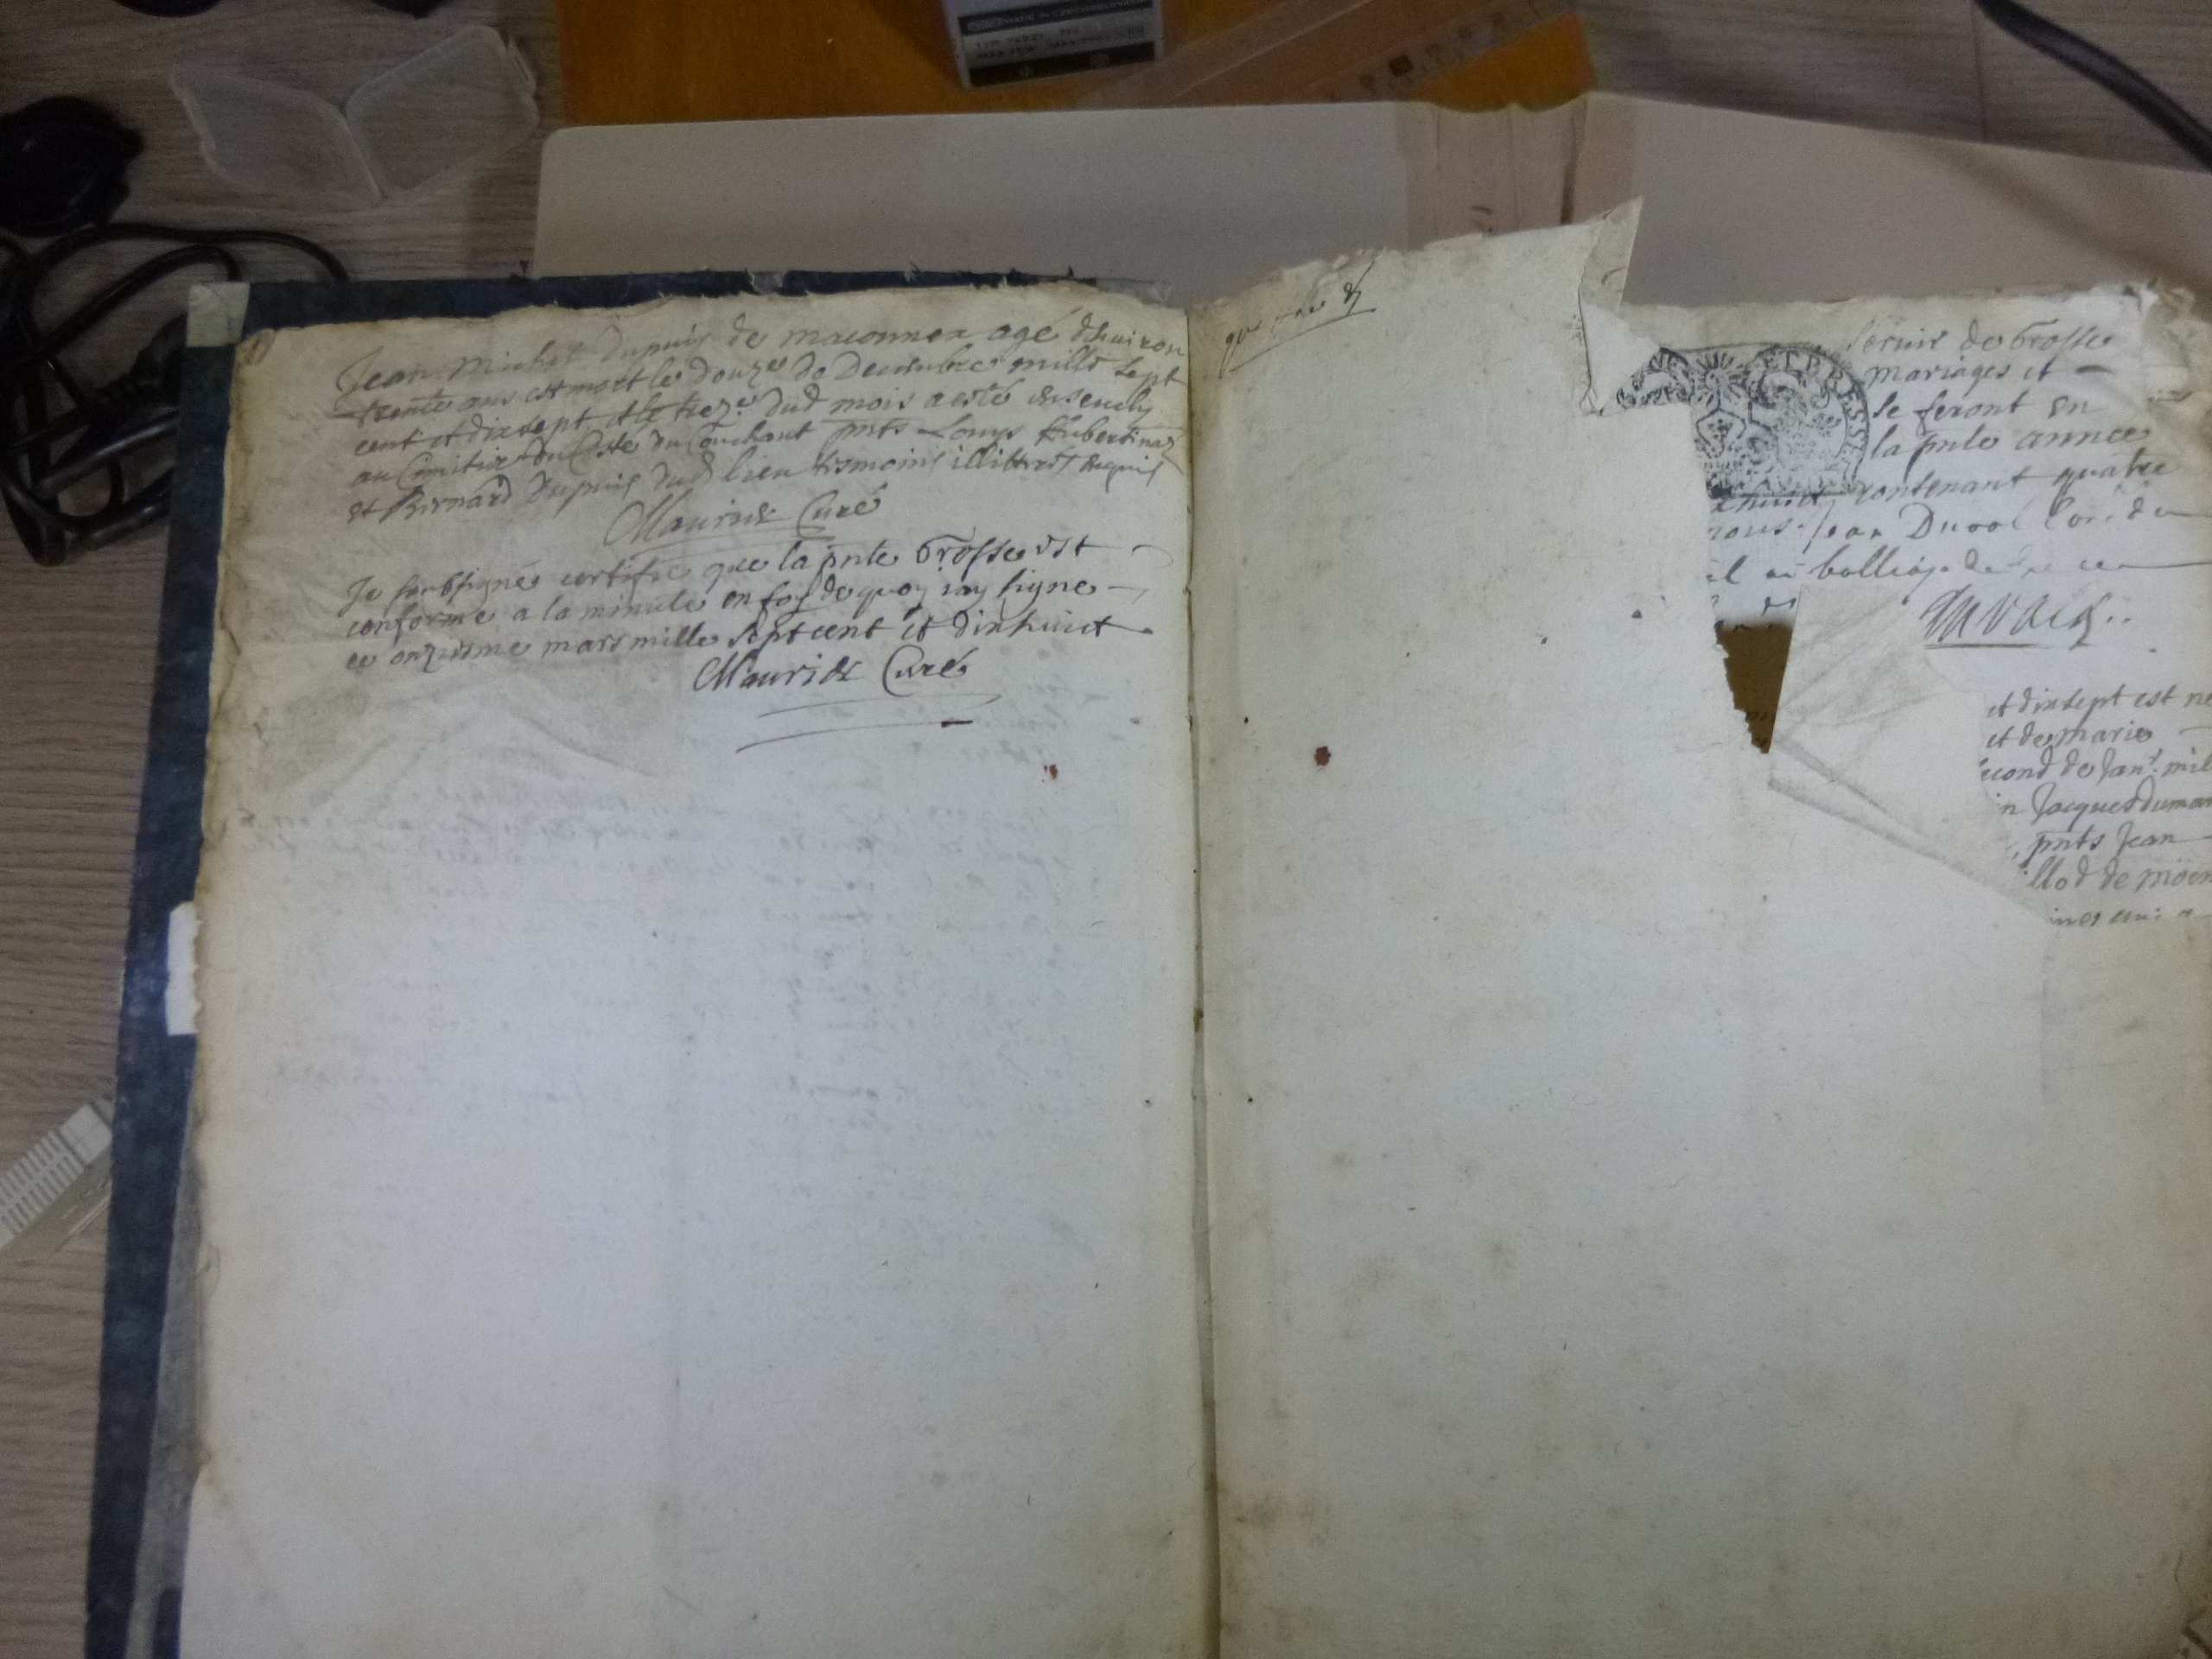 Jean Michel Dupuis de maconnex agé dhuiron
trente ans est mort le douze de Decembre mille sept
cent et dixsept et le treze dud mois a esté ensevely
au Cemitiere du Costé du Couchant pnts Louys Hubertinaz
et Bernard Dupuis dud lieu tesmoins illittres enquis
Mauris Curé
Je soubsigné certifie que la pnte Grosse est
conforme a la minute en foy de quoy iay signé
ce onziesme mars mille sept cent et dixhuict
Mauris Curé
servir de Grosse
mariages et
se feront en
la pnte annee
contenant quatre
nous Jean
el au balliage de
et dixsept est né
et de marie
cond de Janr. mil
n Jacques dumar
pnts Jean
llod de moen